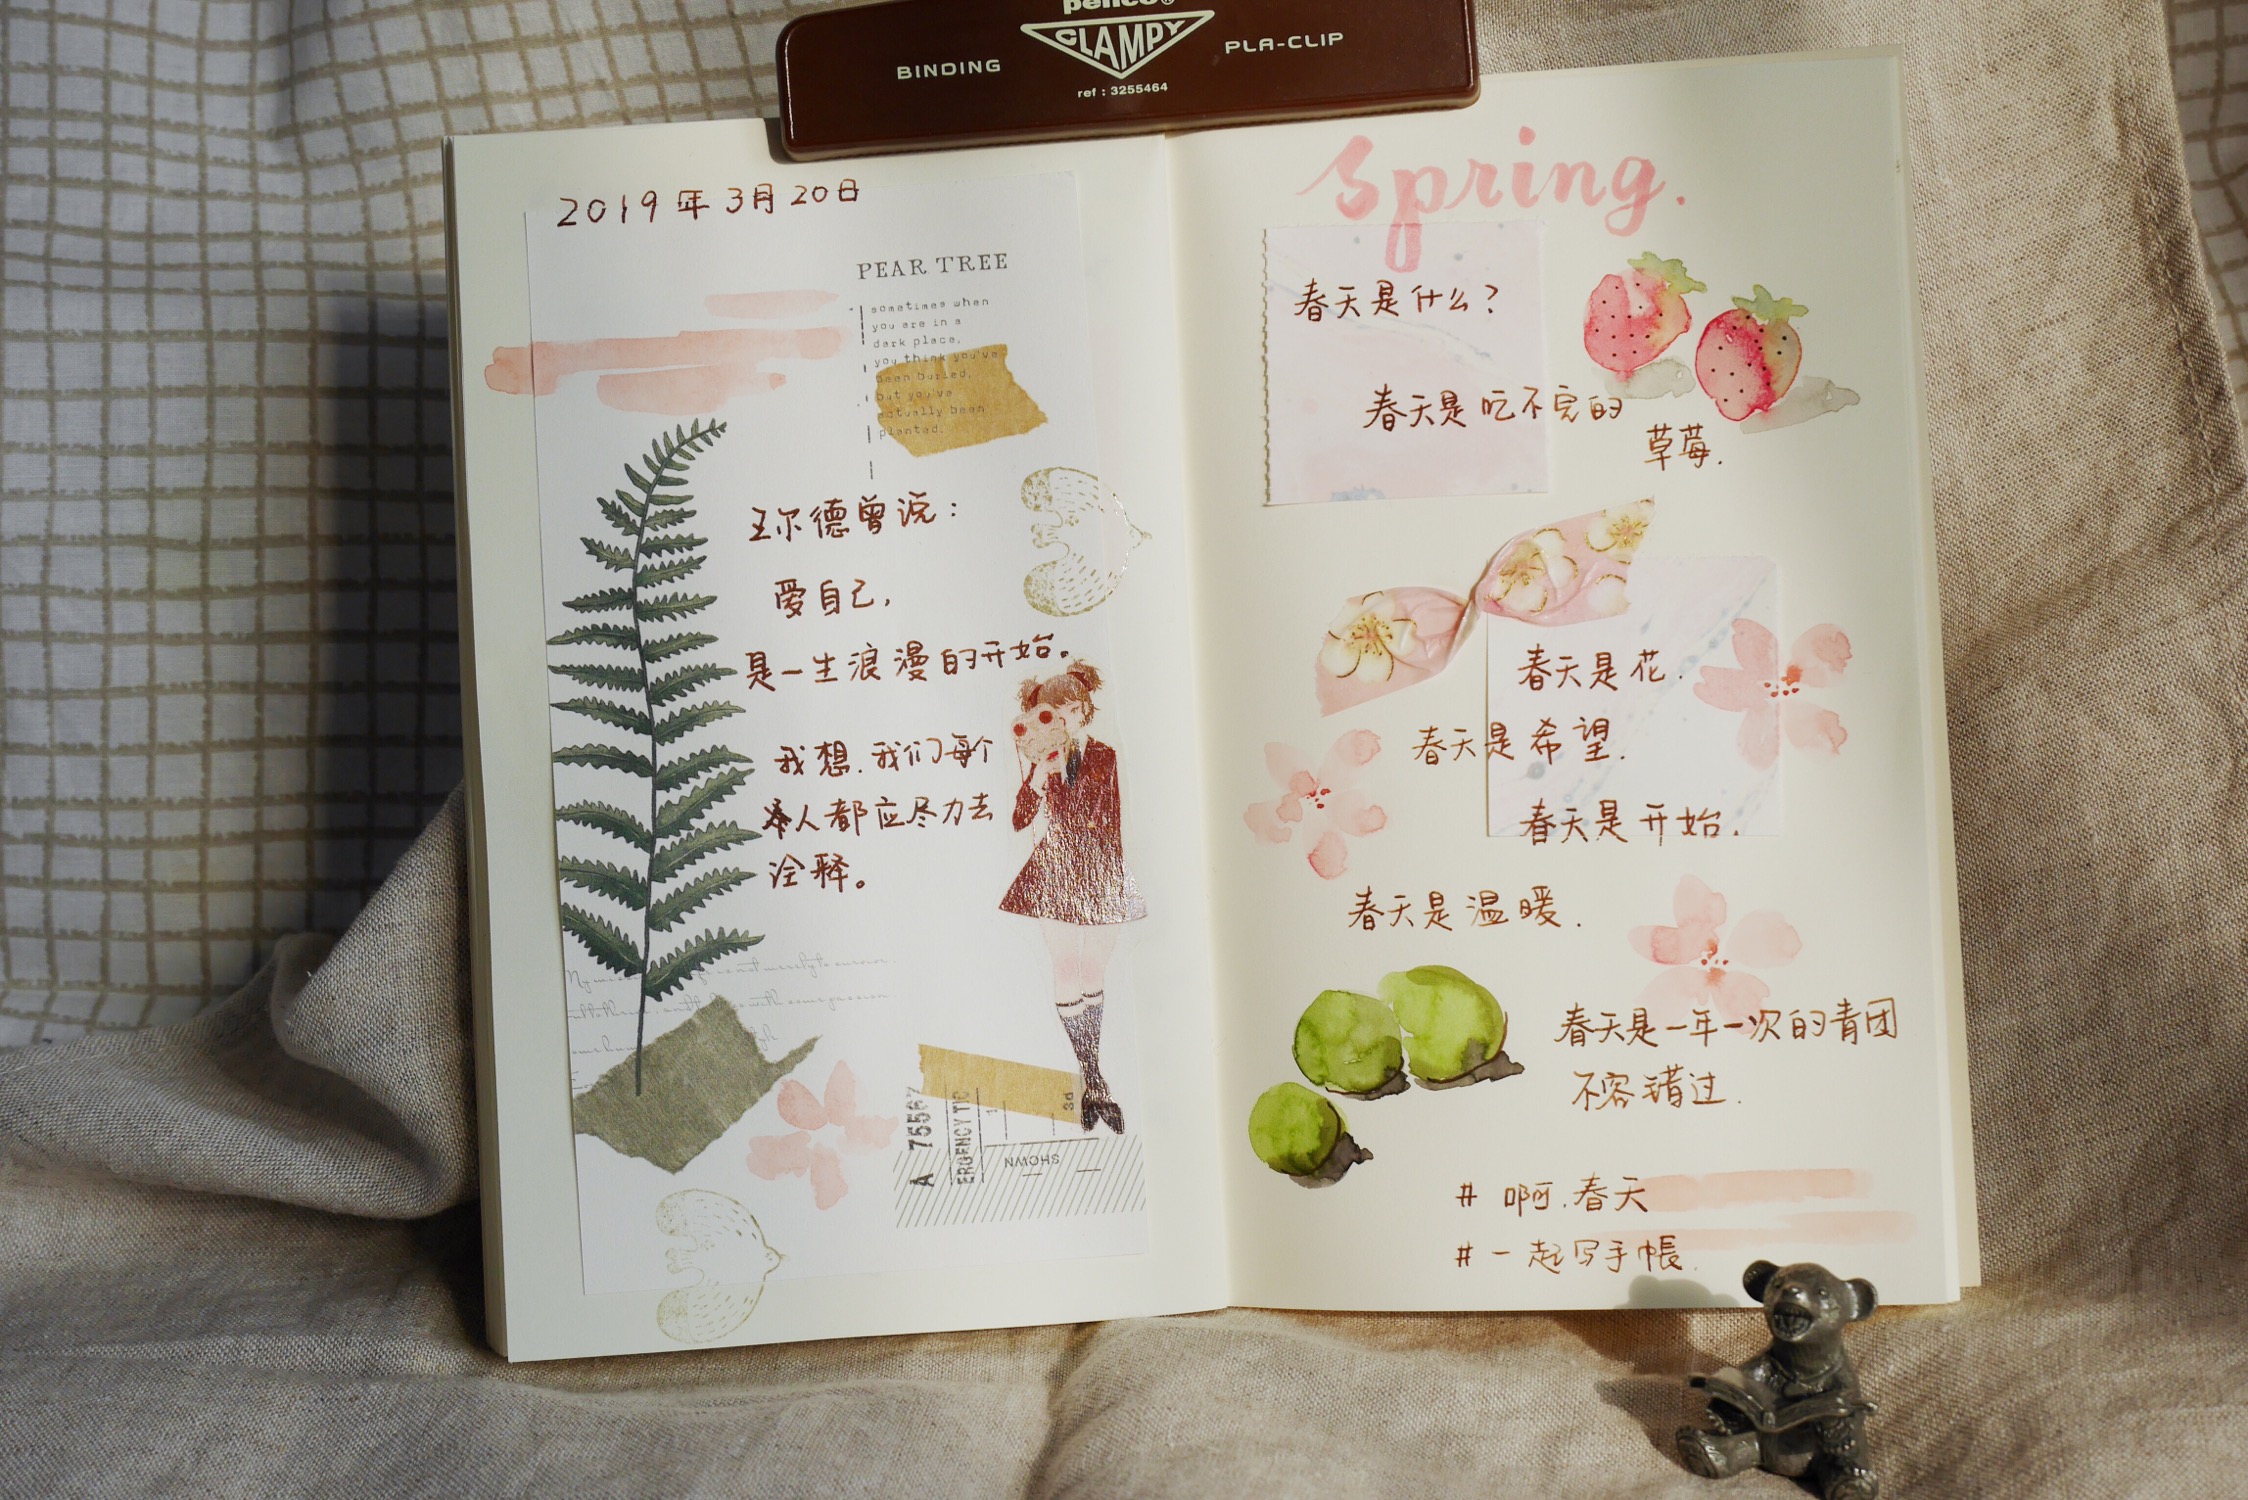 penco®
CLAMPY
BINDING
PLA-CLIP
ref : 3255464
2019年3月20日
PEAR TREE
sometimes when
you are in a
dark place,
you think you've
been buried,
but you've
actually been
planted.
王尔德曾说：
爱自己，
是一生浪漫的开始。
我想，我们每个
人都应尽力去
诠释。
A 7556
ERGENCY TIC
SHOWN
3d
Spring.
春天是什么？
春天是吃不完的
草莓.
春天是花.
春天是希望.
春天是开始.
春天是温暖.
春天是一年一次的青团
不容错过.
# 啊.春天
# 一起写手帳.